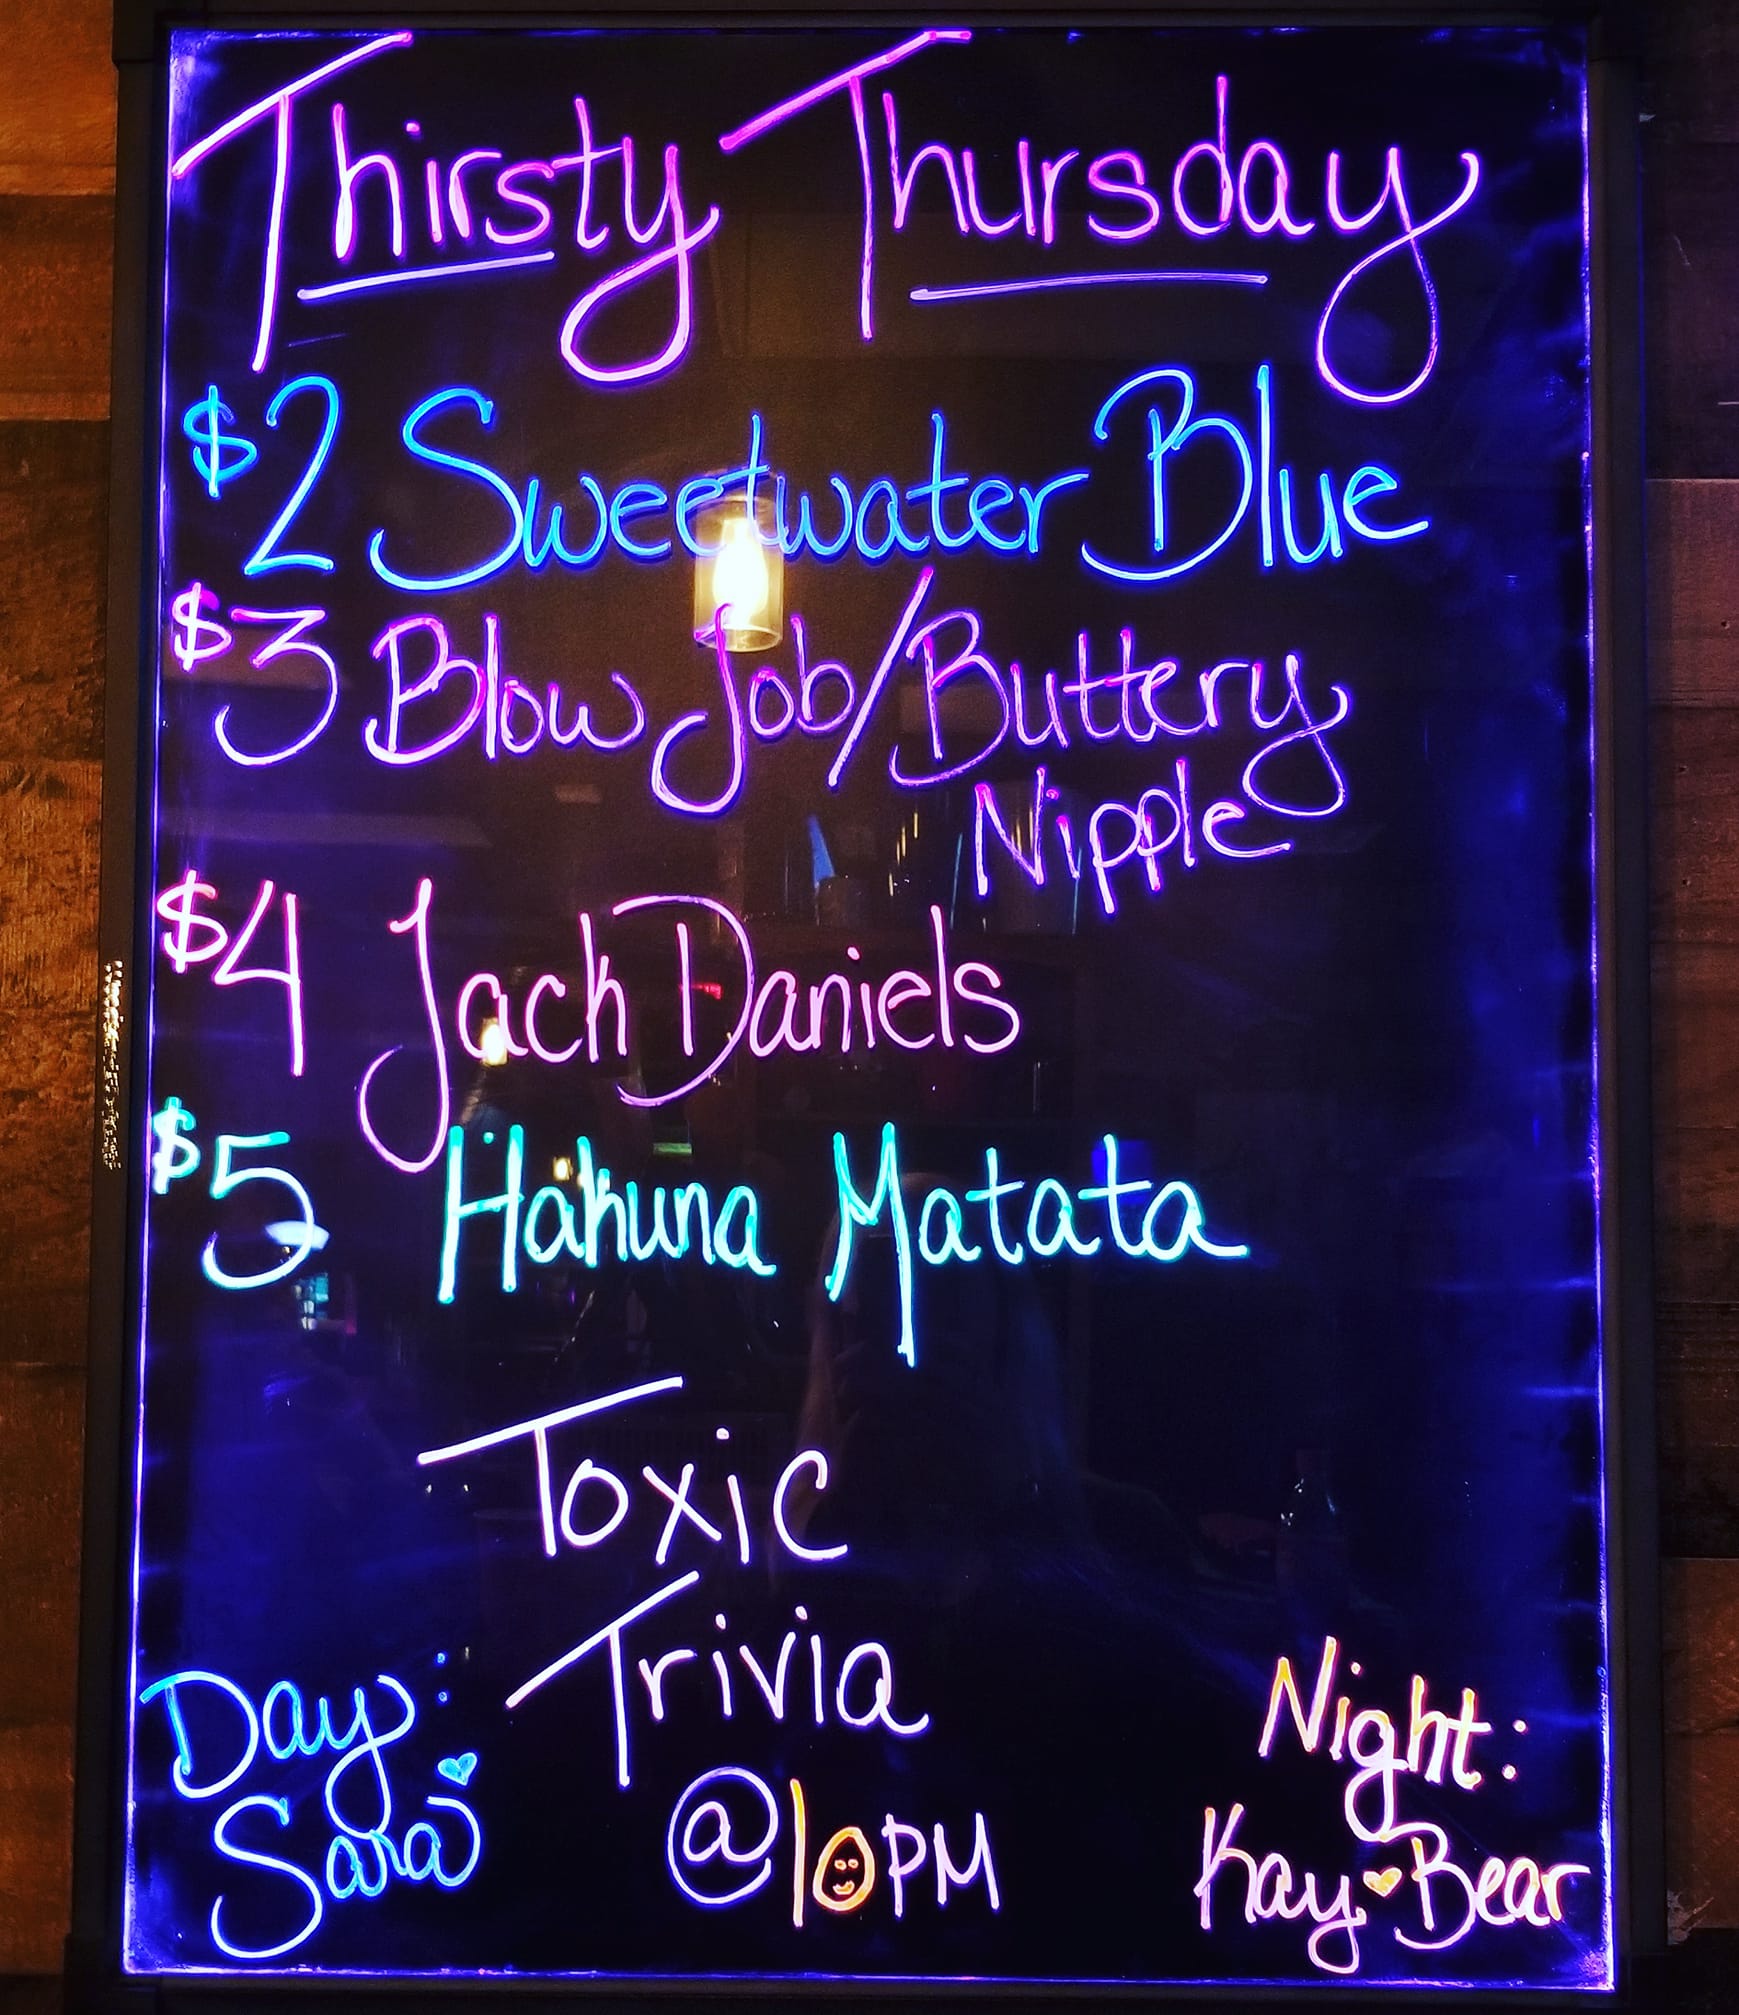 Thirsty Thursday
$2 Sweetwater Blue
$3 Blow Job/Buttery
Nipple
$4 Jack Daniels
$5 Hakuna Matata
Toxic
Trivia
@10PM
Day:
Sara
Night:
Kay Bear